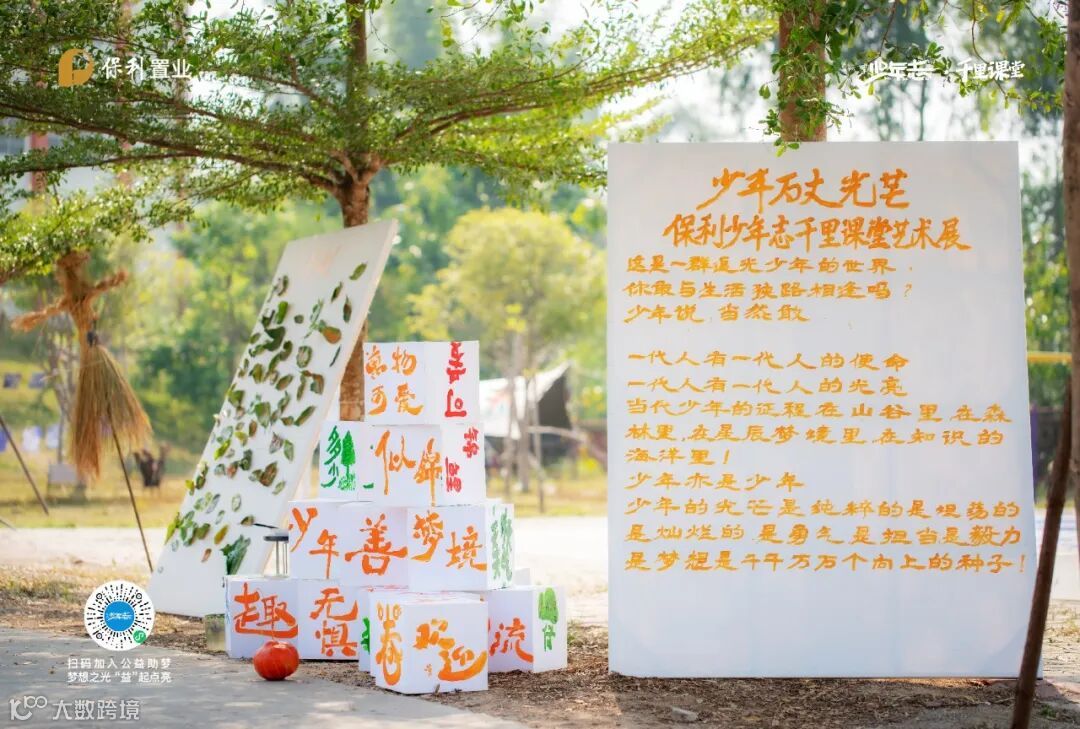 保利置业
少年志
千里课堂
少年万丈光芒
保利少年志千里课堂艺术展
这是一群追光少年的世界，
你敢与生活狭路相逢吗？
少年说,当然敢
一代人有一代人的使命
一代人有一代人的光亮
当代少年的征程,在山谷里,在森
林里,在星辰梦境里,在知识的
海洋里！
少年亦是少年
少年的光芒是纯粹的是坦荡的
是灿烂的是勇气是担当是毅力
是梦想是千千万万个向上的种子！
万物
可爱
似锦
少年
善
梦境
趣
无惧
欢迎
流
少年志
扫码加入公益助梦
梦想之光“益”起点亮
大数跨境